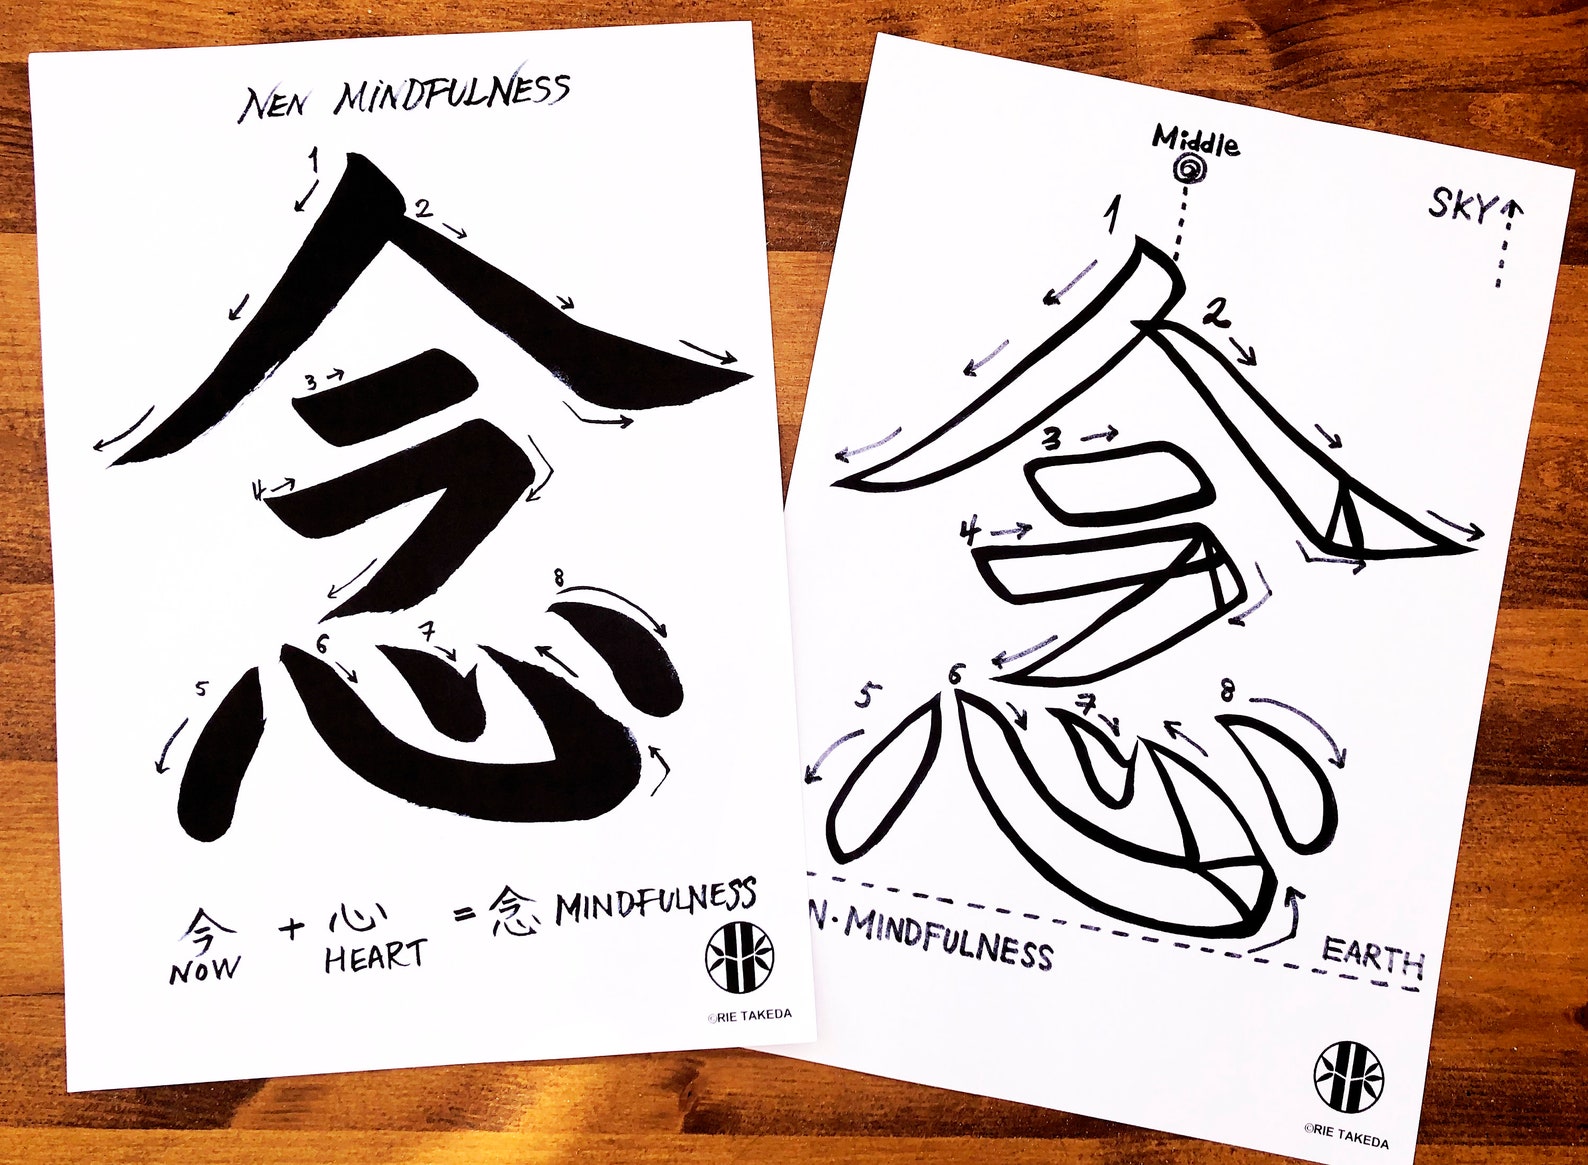 NEN MINDFULNESS
1
2
3
4
5
6
7
8
念
今 + 心 = 念 MINDFULNESS
NOW HEART
©RIE TAKEDA
Middle
SKY
1
2
3
4
5
6
7
8
念
N·MINDFULNESS
EARTH
©RIE TAKEDA